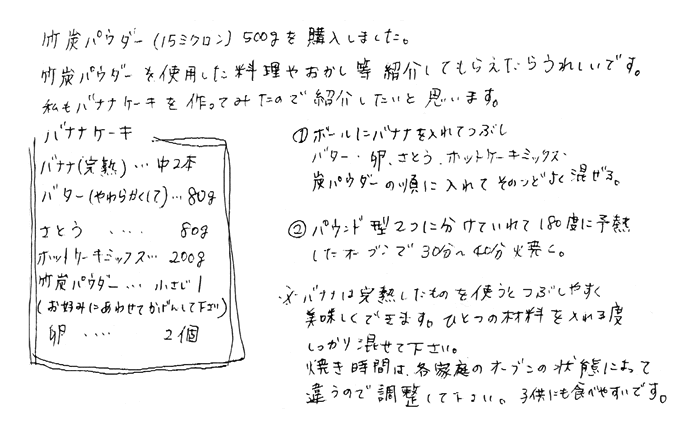 竹炭パウダー(15ミクロン)500gを購入しました。
竹炭パウダーを使用した料理やおかし等紹介してもらえたらうれしいです。
私もバナナケーキを作ってみたので紹介したいと思います。
バナナケーキ
バナナ(完熟)…中2本
バター(やわらかくして)…80g
さとう ‥‥ 80g
ホットケーキミックス…200g
竹炭パウダー…小さじ1
(お好みにあわせてかげんして下さい)
卵 ‥‥ 2個
①ボールにバナナを入れてつぶし
バター・卵、さとう、ホットケーキミックス、
炭パウダーの順に入れてそのつどよく混ぜる。
②パウンド型2つに分けていれて180度に予熱
したオーブンで30分〜40分焼く。
※バナナは完熟したものを使うとつぶしやすく
美味しくできます。ひとつの材料を入れる度
しっかり混せて下さい。
焼き時間は、各家庭のオーブンの状態によって
違うので調整して下さい。子供にも食べやすいです。